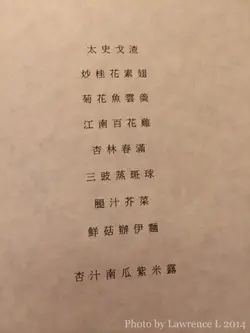 太史戈渣
炒桂花素翅
菊花魚雲羹
江南百花雞
杏林春滿
三豉蒸斑球
腿汁芥菜
鮮菇辦伊麵
杏汁南瓜紫米露
Photo by Lawrence L 2014